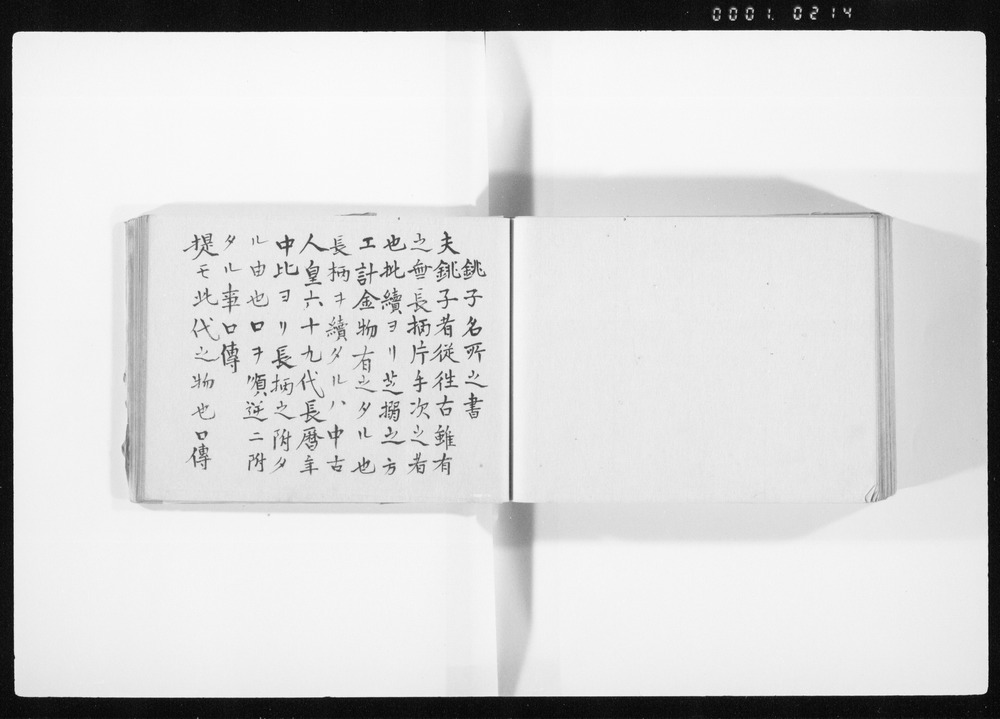 0001. 0214
銚子名所之書
夫銚子者從往古雖有
之無長柄片手次之者
也批續ヨリ芝搦之方
エ計金物有之タル也
長柄ヲ續タルハ中古
人皇六十九代長暦年
中比ヨリ長柄之附タ
ル由也口ヲ順逆ニ附
タル事口傳
提モ此代之物也口傳